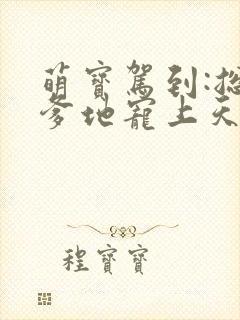 萌寶駕到:總
爹地寵上天
程寶寶